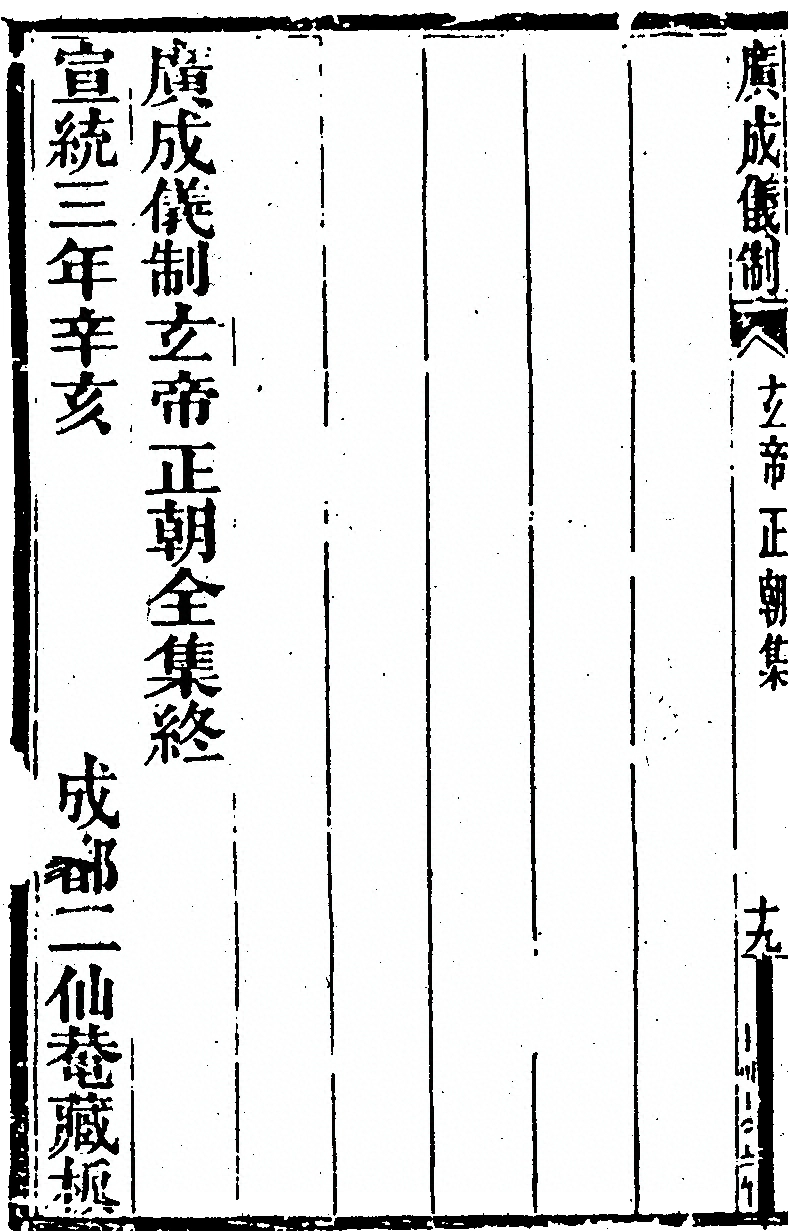 廣成儀制
玄帝正朝集
十九
廣成儀制玄帝正朝全集終
宣統三年辛亥
成都二仙菴藏板